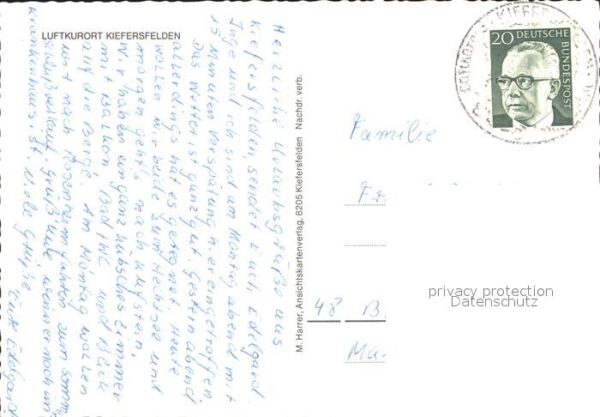 LUFTKURORT KIEFERSFELDEN
Herzliche Urlaubsgrüße aus
Kiefersfelden, sendet Euch Edelgard.
Inge und ich sind am Montag abend mit
15 Minuten Verspätung hier eingetroffen
Das Wetter ist ganz gut. Gestern abend
allerdings hat es geregnet. Heute
wollen wir beide zum Hechtsee und
morgen geht's nach Kufstein.
Wir haben ein ganz hübsches Zimmer
mit Balkon, Bad + WC und Blick
auf die Berge. Am Montag wollen
wir nach Rosenheim fahren zum Sommer
Grüßt
Krankenhaus ist. Viele Grüße
M. Harrer, Ansichtskartenverlag, 8205 Kiefersfelden Nachdr. verb.
20 DEUTSCHE
BUNDESPOST
KIEFER
Familie
48 B
Ma
privacy protection
Datenschutz